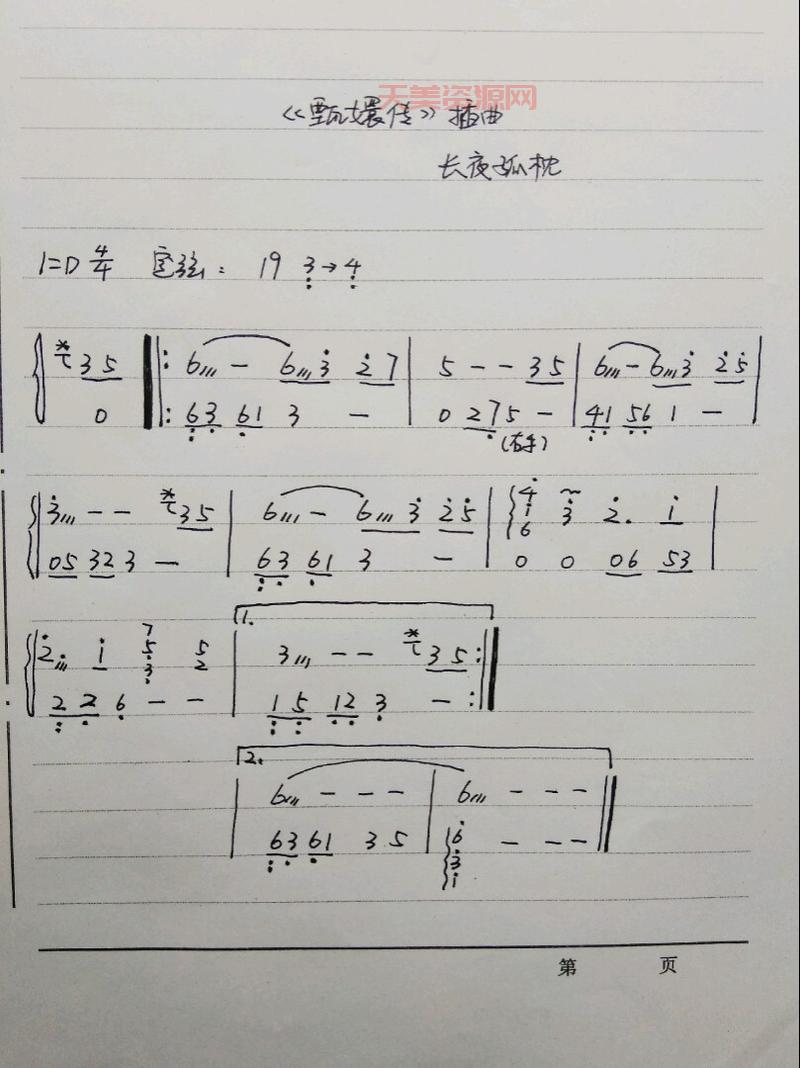 天美资源网
《甄嬛传》插曲
长夜孤枕
1=D 4/4 定弦: 19 3→4
3 5 ‖: 6 - 6 3 2 7 | 5 - - 3 5 | 6 - 6 3 2 5 |
0 : 6 3 6 1 3 - | 0 2 7 5 - | 4 1 5 6 1 - |
(右手)
3 - - 3 5 | 6 - 6 3 2 5 | 4 i 6 3 2. i |
0 5 3 2 3 - | 6 3 6 1 3 - | 0 0 0 6 5 3 |
1.
2. i 7 5 3 5 2 | 3 - - 3 5 :‖
2 2 6 - - | 1 5 1 2 3 - :‖
2.
6 - - - | 6 - - - ‖
6 3 6 1 3 5 | 6 3 i - - - ‖
第 页